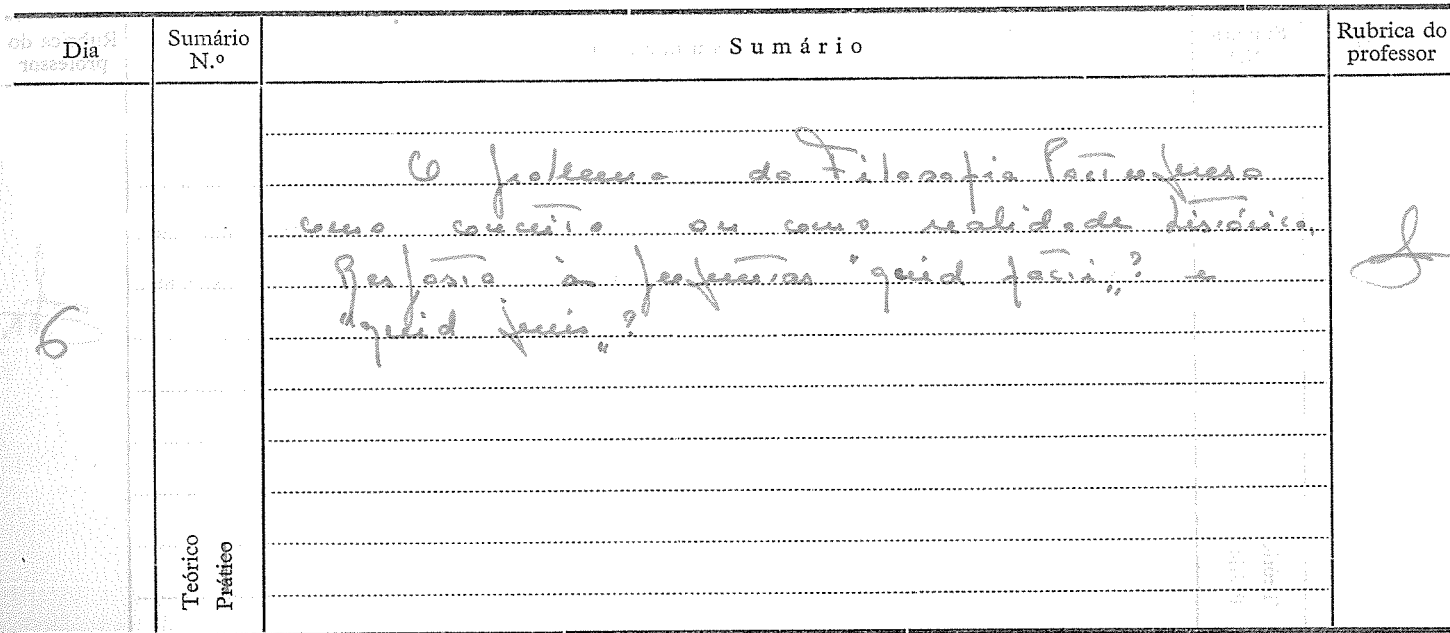 Dia
Sumário N.º
Sumário
Rubrica do professor
O problema da Filosofia Portuguesa
como conceito ou como realidade histórica.
Resposta às perguntas "quid facti„? e
"quid juris„?
6
Teórico
Prático